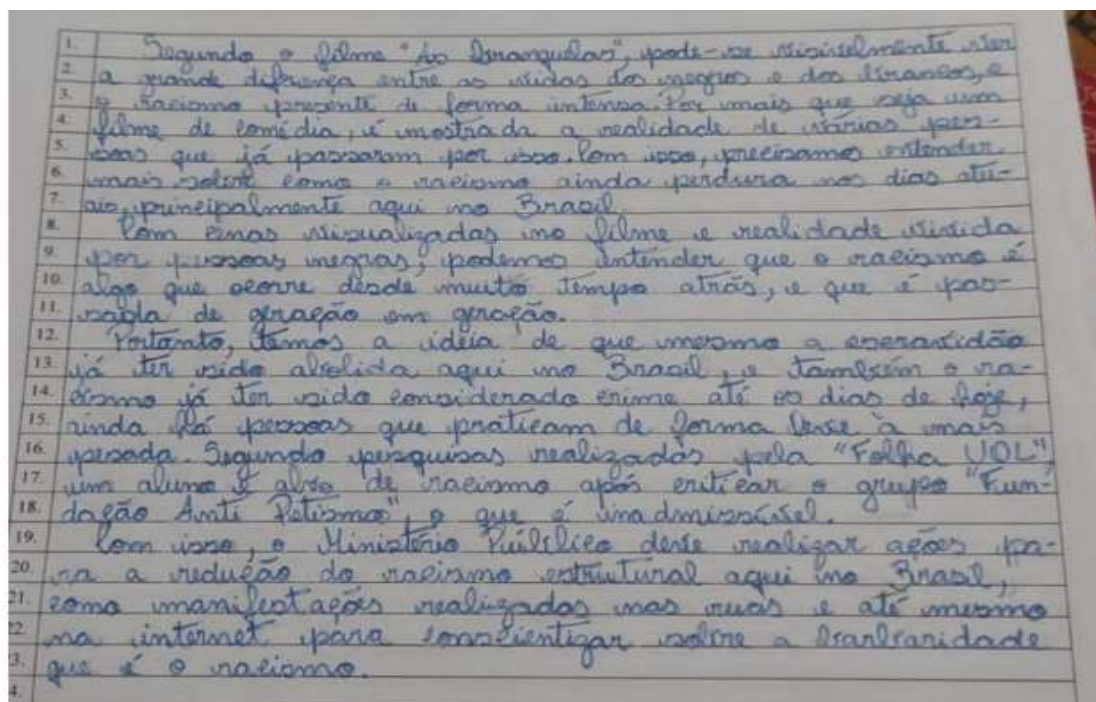 1. Segundo o filme "As branquelas", pode-se visivelmente ver
2. a grande difrença entre as vidas dos negros e dos brancos, e
3. o racismo presente de forma intensa. Por mais que seja um
4. filme de comédia, é mostrada a realidade de várias pes-
5. soas que já passaram por isso. Com isso, precisamos entender
6. mais sobre como o racismo ainda perdura nos dias atu-
7. ais, principalmente aqui no Brasil.
8. Com cenas visualizadas no filme e realidade vivida
9. por pessoas negras, podemos entender que o racismo é
10. algo que ocorre desde muito tempo atrás, e que é pas-
11. sada de geração em geração.
12. Portanto, temos a idéia de que mesmo a escravidão
13. já ter sido abolida aqui no Brasil, e também o ra-
14. cismo já ter sido considerado crime até os dias de hoje,
15. ainda há pessoas que praticam de forma leve à mais
16. pesada. Segundo pesquisas realizadas pela "Folha UOL"
17. um aluno é alvo de racismo após criticar o grupo "Fun-
18. dação Anti Petismo", o que é inadmissível.
19. Com isso, o Ministério Público deve realizar ações pa-
20. ra a redução do racismo estrutural aqui no Brasil,
21. como manifestações realizadas nas ruas e até mesmo
22. na internet para conscientizar sobre a barbaridade
23. que é o racismo.
4.